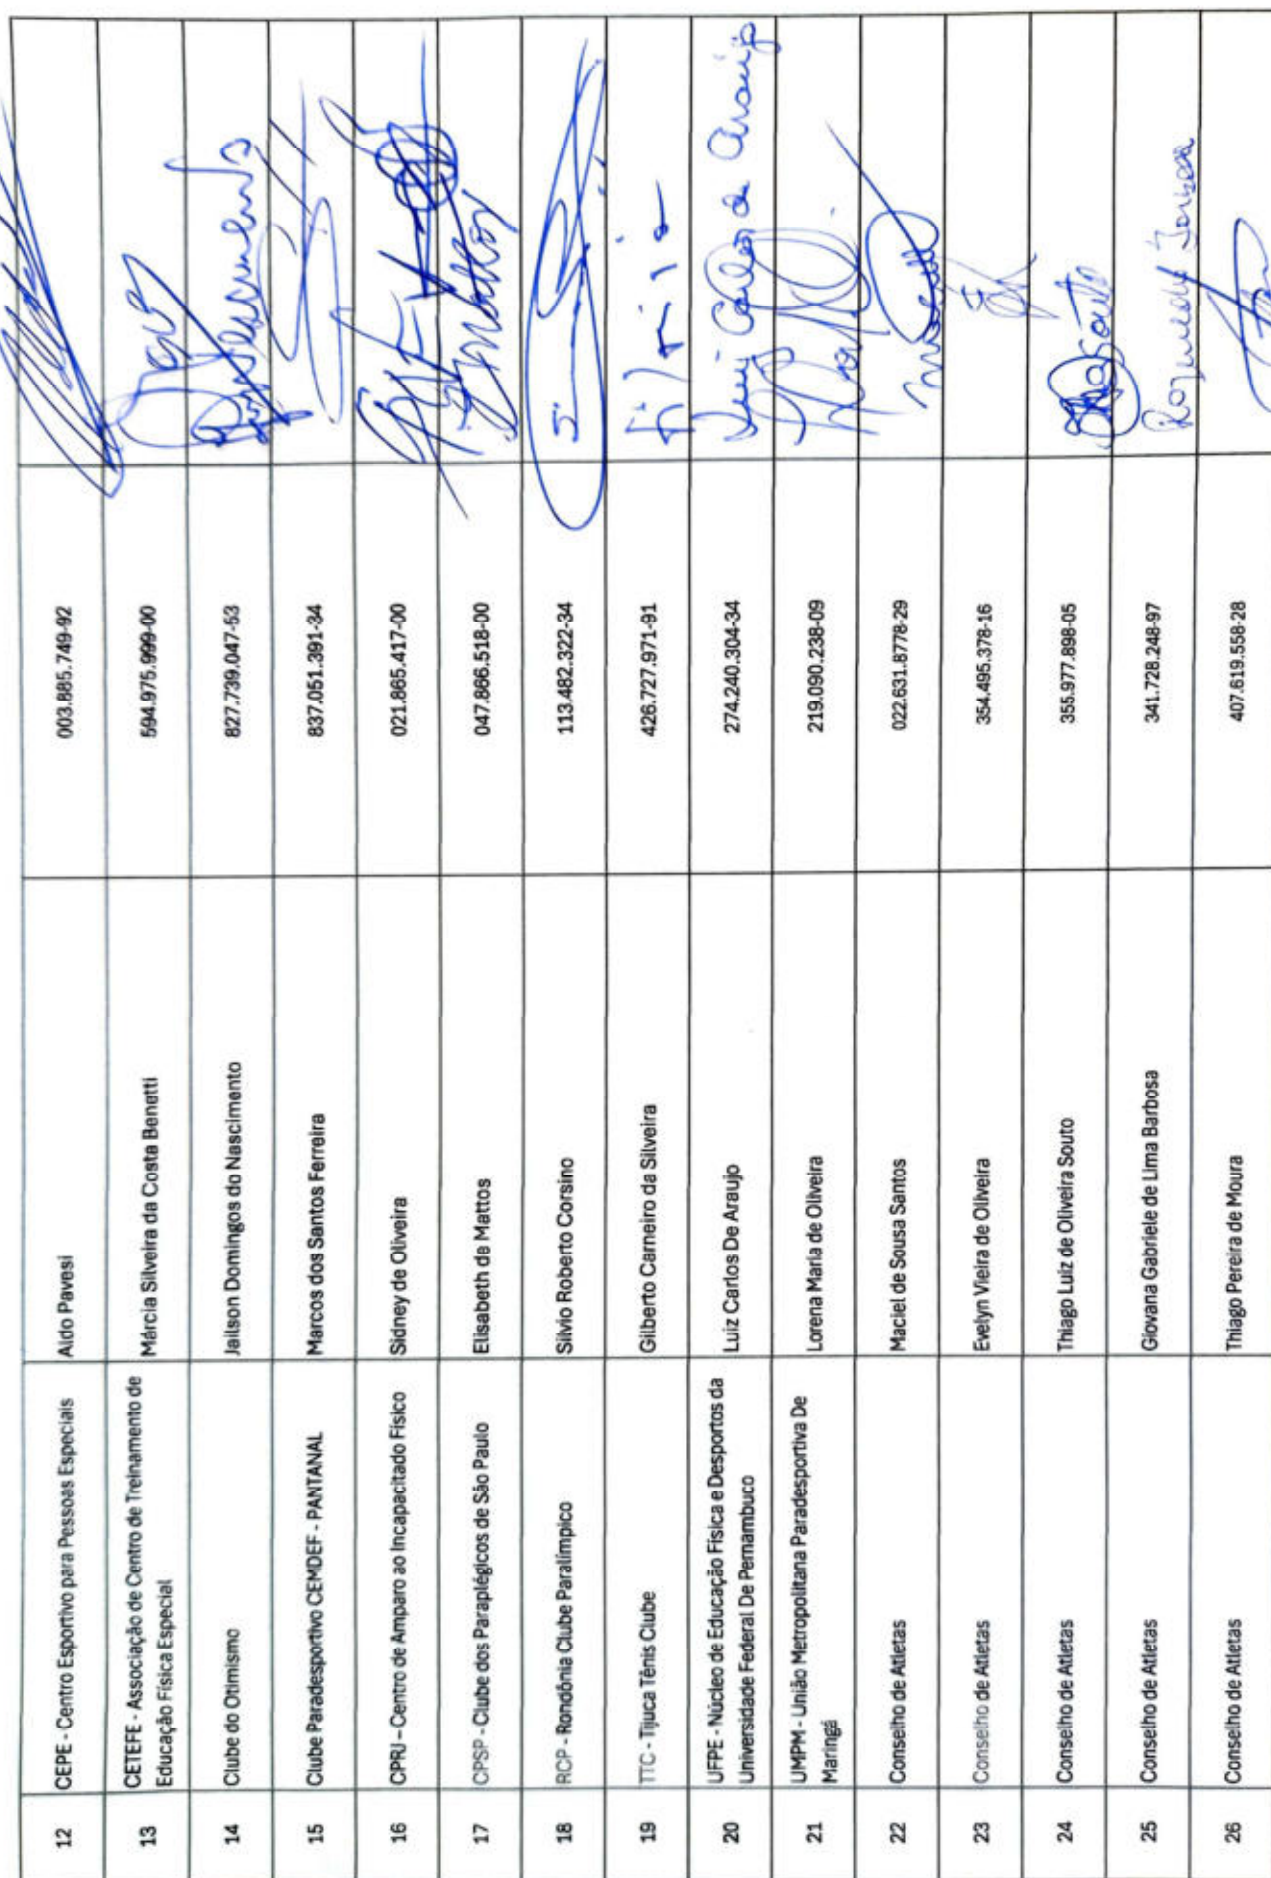 12 CEPE - Centro Esportivo para Pessoas Especiais Aldo Pavesi 003.885.749-92
13 CETEFE - Associação de Centro de Treinamento de Márcia Silveira da Costa Benetti 594.975.999-00
Educação Física Especial
14 Clube do Otimismo Jailson Domingos do Nascimento 827.739.047-53
15 Clube Paradesportivo CEMDEF - PANTANAL Marcos dos Santos Ferreira 837.051.391-34
16 CPRJ – Centro de Amparo ao Incapacitado Físico Sidney de Oliveira 021.865.417-00
17 CPSP - Clube dos Paraplégicos de São Paulo Elisabeth de Mattos 047.866.518-00
18 RCP - Rondônia Clube Paralímpico Silvio Roberto Corsino 113.482.322-34
19 TTC - Tijuca Tênis Clube Gilberto Carneiro da Silveira 426.727.971-91
20 UFPE - Núcleo de Educação Física e Desportos da Luiz Carlos De Araujo 274.240.304-34 Luiz Carlos de Araújo
Universidade Federal De Pernambuco
21 UMPM - União Metropolitana Paradesportiva De Lorena Maria de Oliveira 219.090.238-09
Maringá
22 Conselho de Atletas Maciel de Sousa Santos 022.631.8778-29
23 Conselho de Atletas Evelyn Vieira de Oliveira 354.495.378-16
24 Conselho de Atletas Thiago Luiz de Oliveira Souto 355.977.898-05
25 Conselho de Atletas Giovana Gabriele de Lima Barbosa 341.728.248-97
26 Conselho de Atletas Thiago Pereira de Moura 407.619.558-28